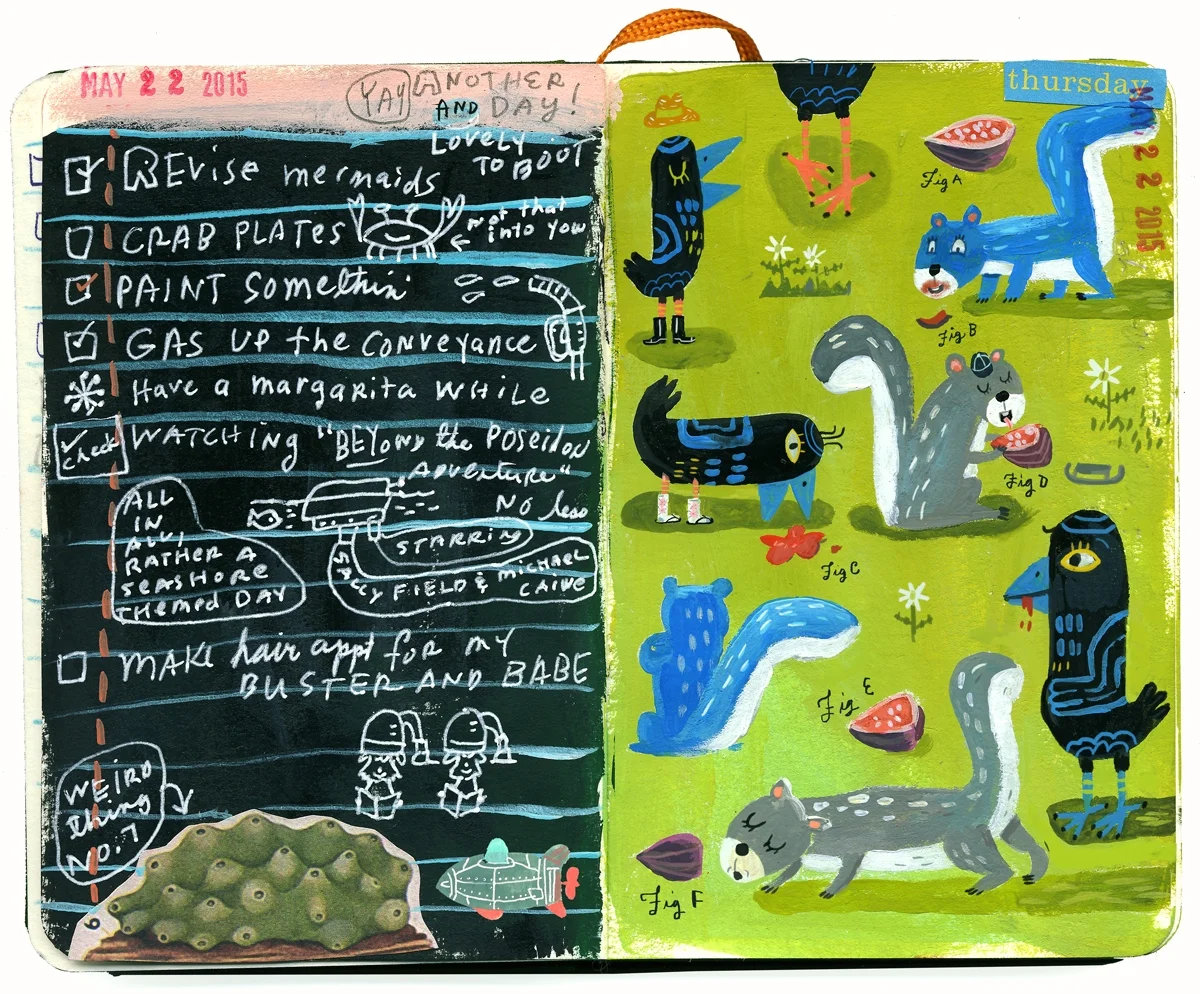 MAY 22 2015
YAY ANOTHER
AND DAY!
LOVELY
TO BOOT
REvise mermaids
CRAB PLATES
not that
into you
PAINT Somethin'
GAS UP the Conveyance
Have a margarita WHILE
check
WATCHING "BEYond the Poseidon
Adventure"
NO less
ALL
IN
ALL,
RATHER A
SEASHORE
THemed DAY
STARRING
SALLY FIELD & MICHAEL
CAINE
MAKE hair appt for MY
BUSTER AND BABE
WEIRD
thing
NO. 7
9
thursday
MAY 22 2015
Fig A
Fig B
Fig D
Fig C
Fig E
Fig F